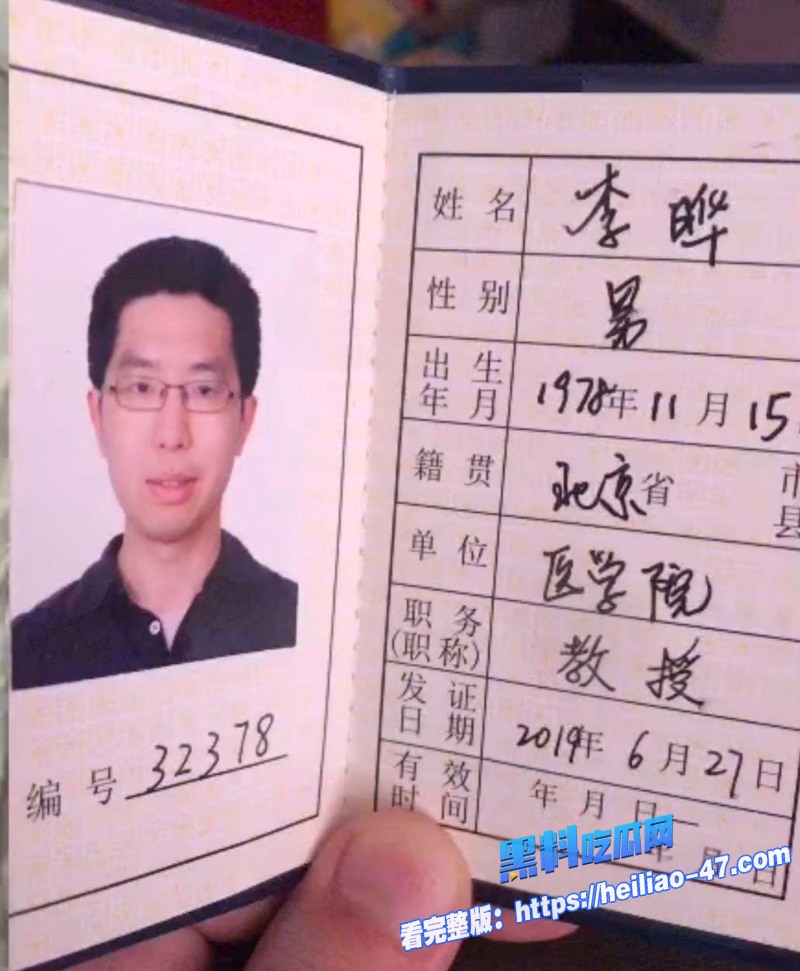 编号 32378
姓名 李晔
性别 男
出生年月 1978年11月15
籍贯 北京省 市县
单位 医学院
职务(职称) 教授
发证日期 2019年6月27日
有效时间 年月日
年 月 日
黑料吃瓜网
看完整版：https://heiliao-47.com